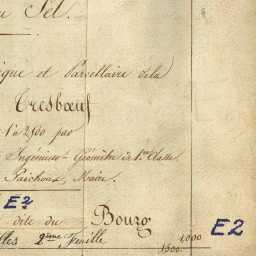 Sel.
ique et Parcellaire de la
Tresbœuf
1 à 2500 par
Ingénieur-Géomètre de 1ère Classe
Maire.
E2
dite du Bourg
E2
2ème Feuille
1000
1500